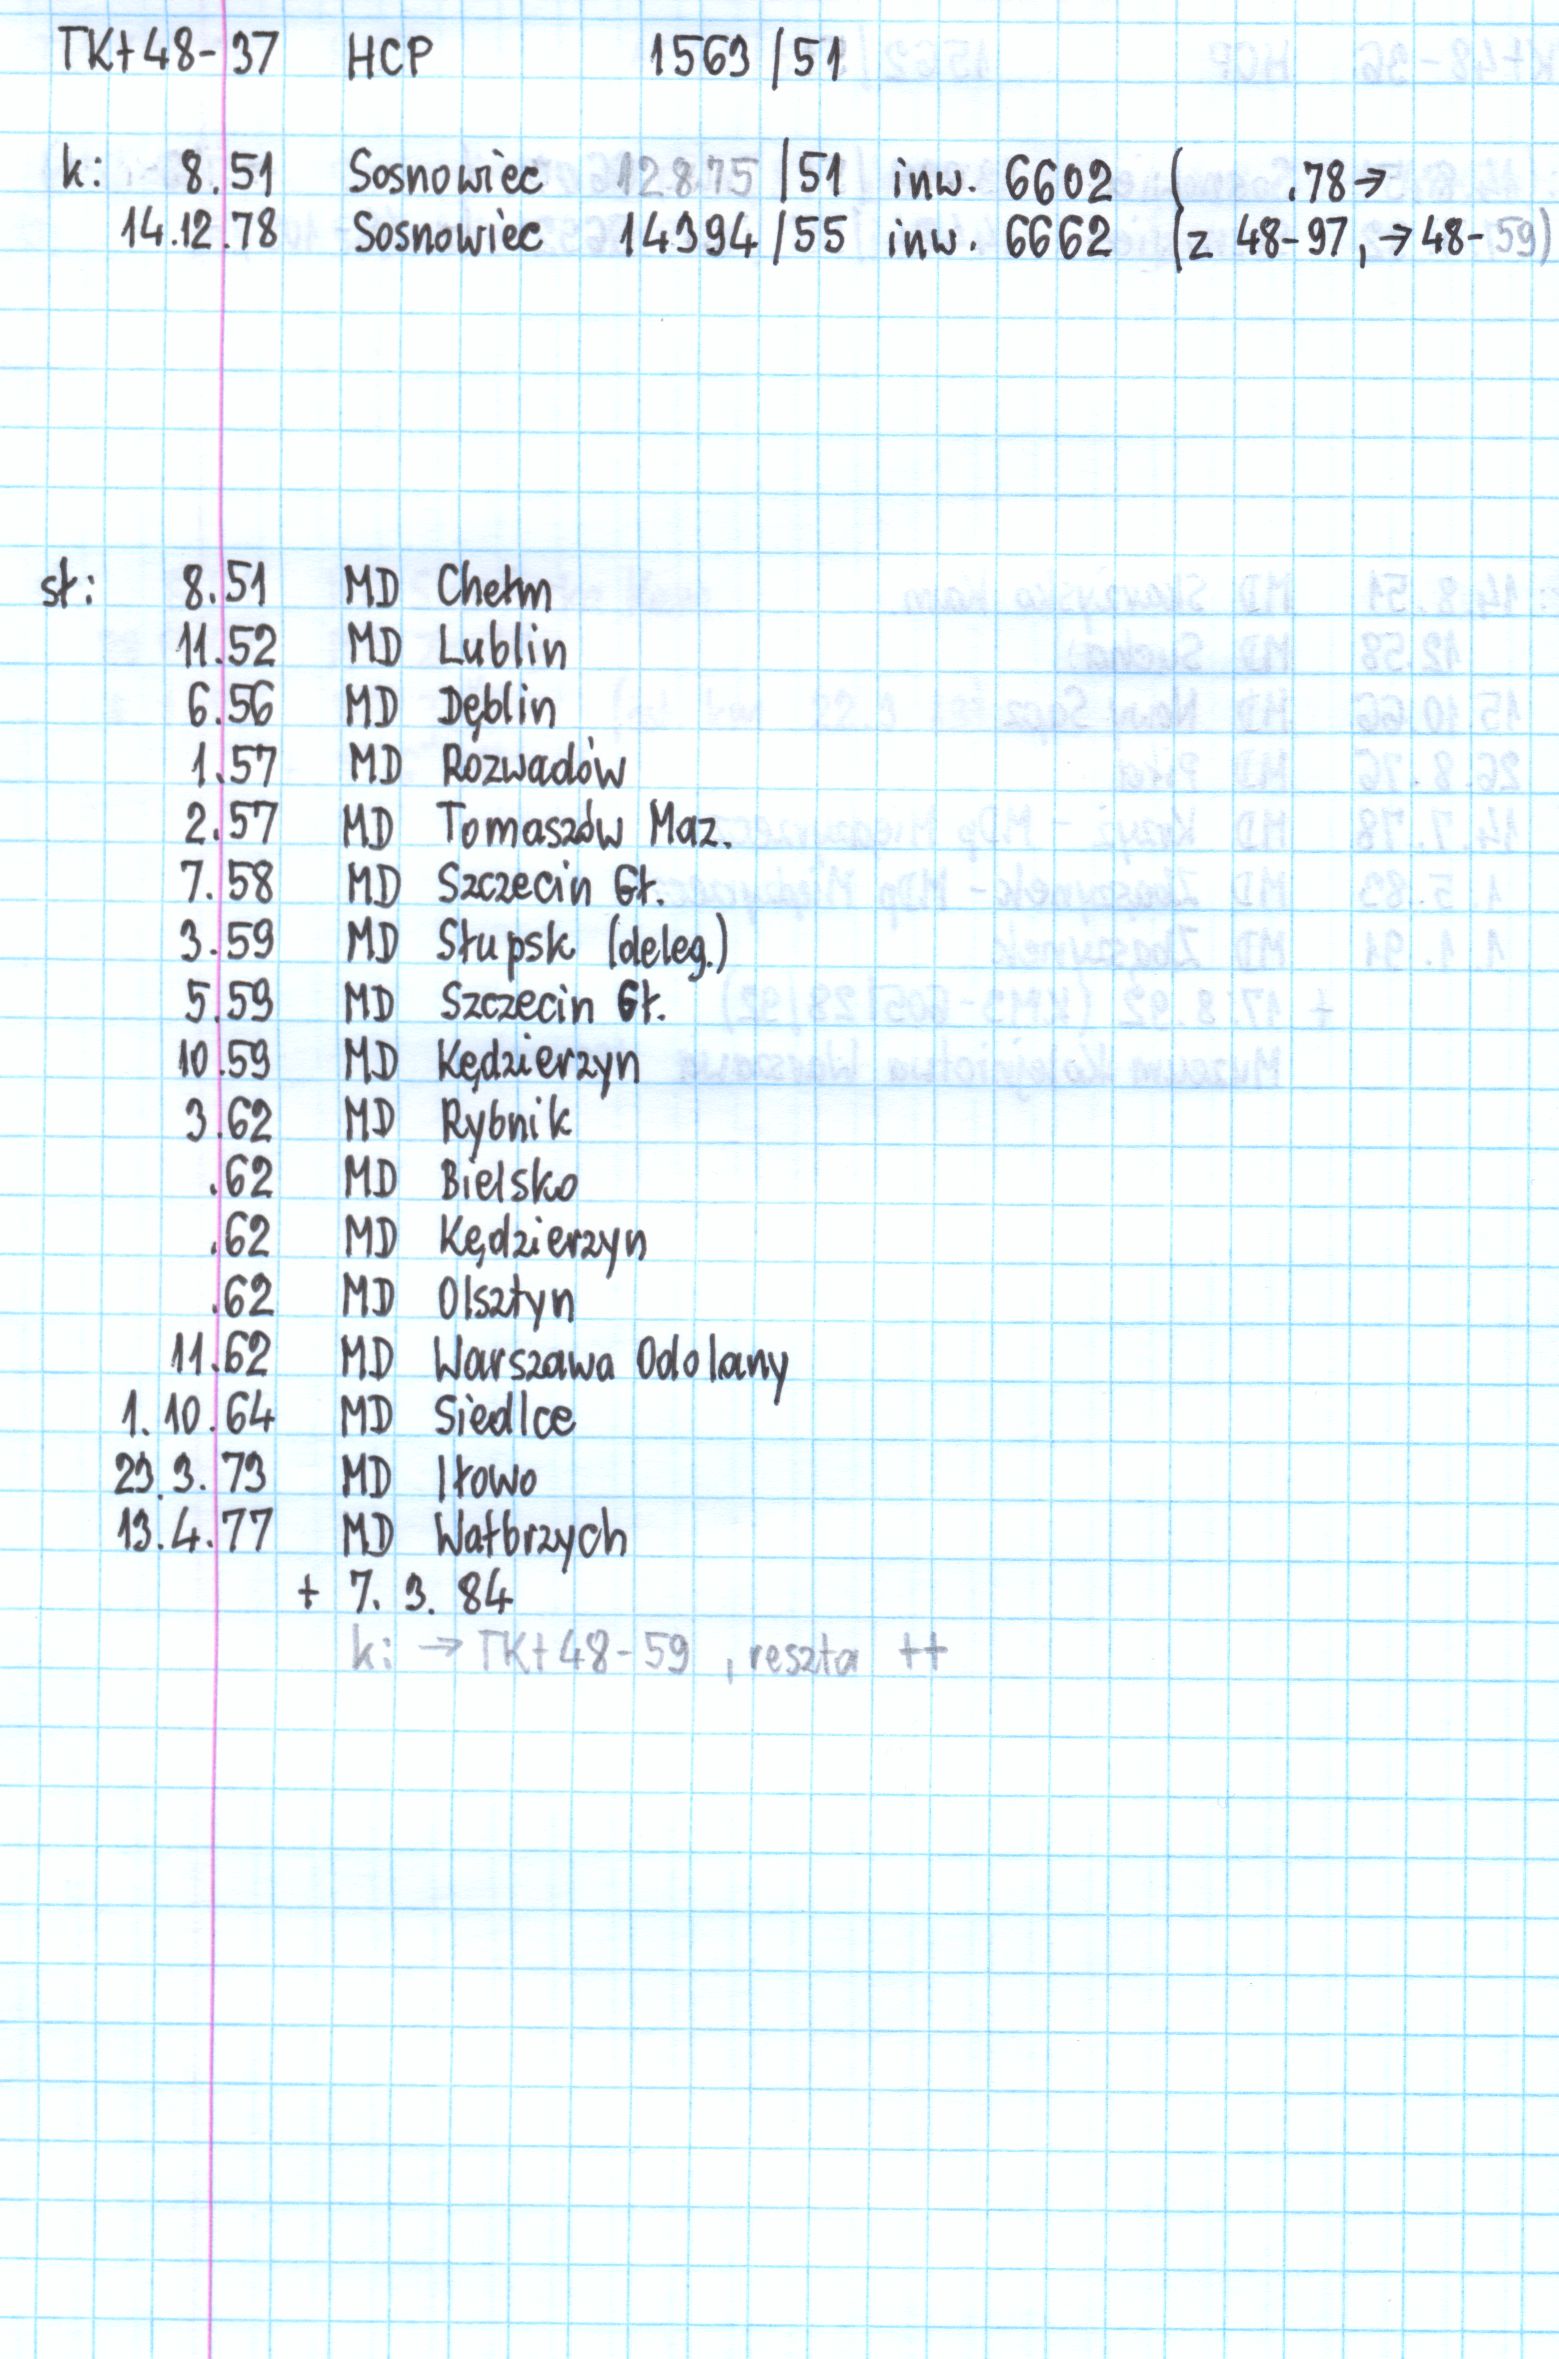 TKt48-37 HCP 1563/51
k: 8.51 Sosnowiec 12875/51 inw. 6602 ( .78→
14.12.78 Sosnowiec 14394/55 inw. 6662 (z 48-97, →48-59)
st: 8.51 MD Chełm
11.52 MD Lublin
6.56 MD Dęblin
1.57 MD Rozwadów
2.57 MD Tomaszów Maz.
7.58 MD Szczecin Gł.
3.59 MD Słupsk (deleg.)
5.59 MD Szczecin Gł.
10.59 MD Kędzierzyn
3.62 MD Rybnik
.62 MD Bielsko
.62 MD Kędzierzyn
.62 MD Olsztyn
11.62 MD Warszawa Odolany
1.10.64 MD Siedlce
23.3.73 MD Iłowo
13.4.77 MD Wałbrzych
+ 7.3.84
k: → TKt48-59, reszta ++